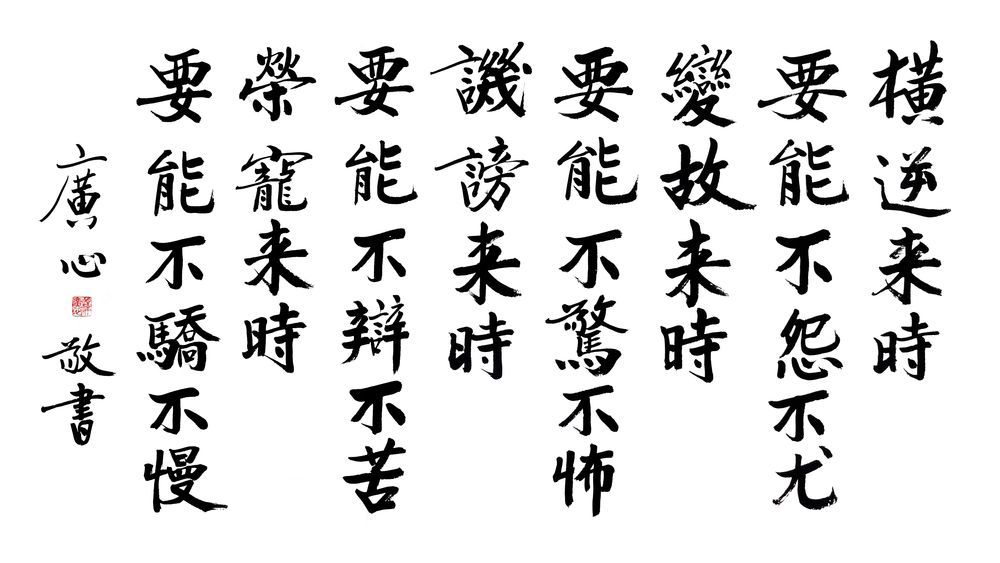 橫逆来時
要能不怨不尤
變故来時
要能不驚不怖
譏謗来時
要能不辯不苦
榮寵来時
要能不驕不慢
廣心
敬書